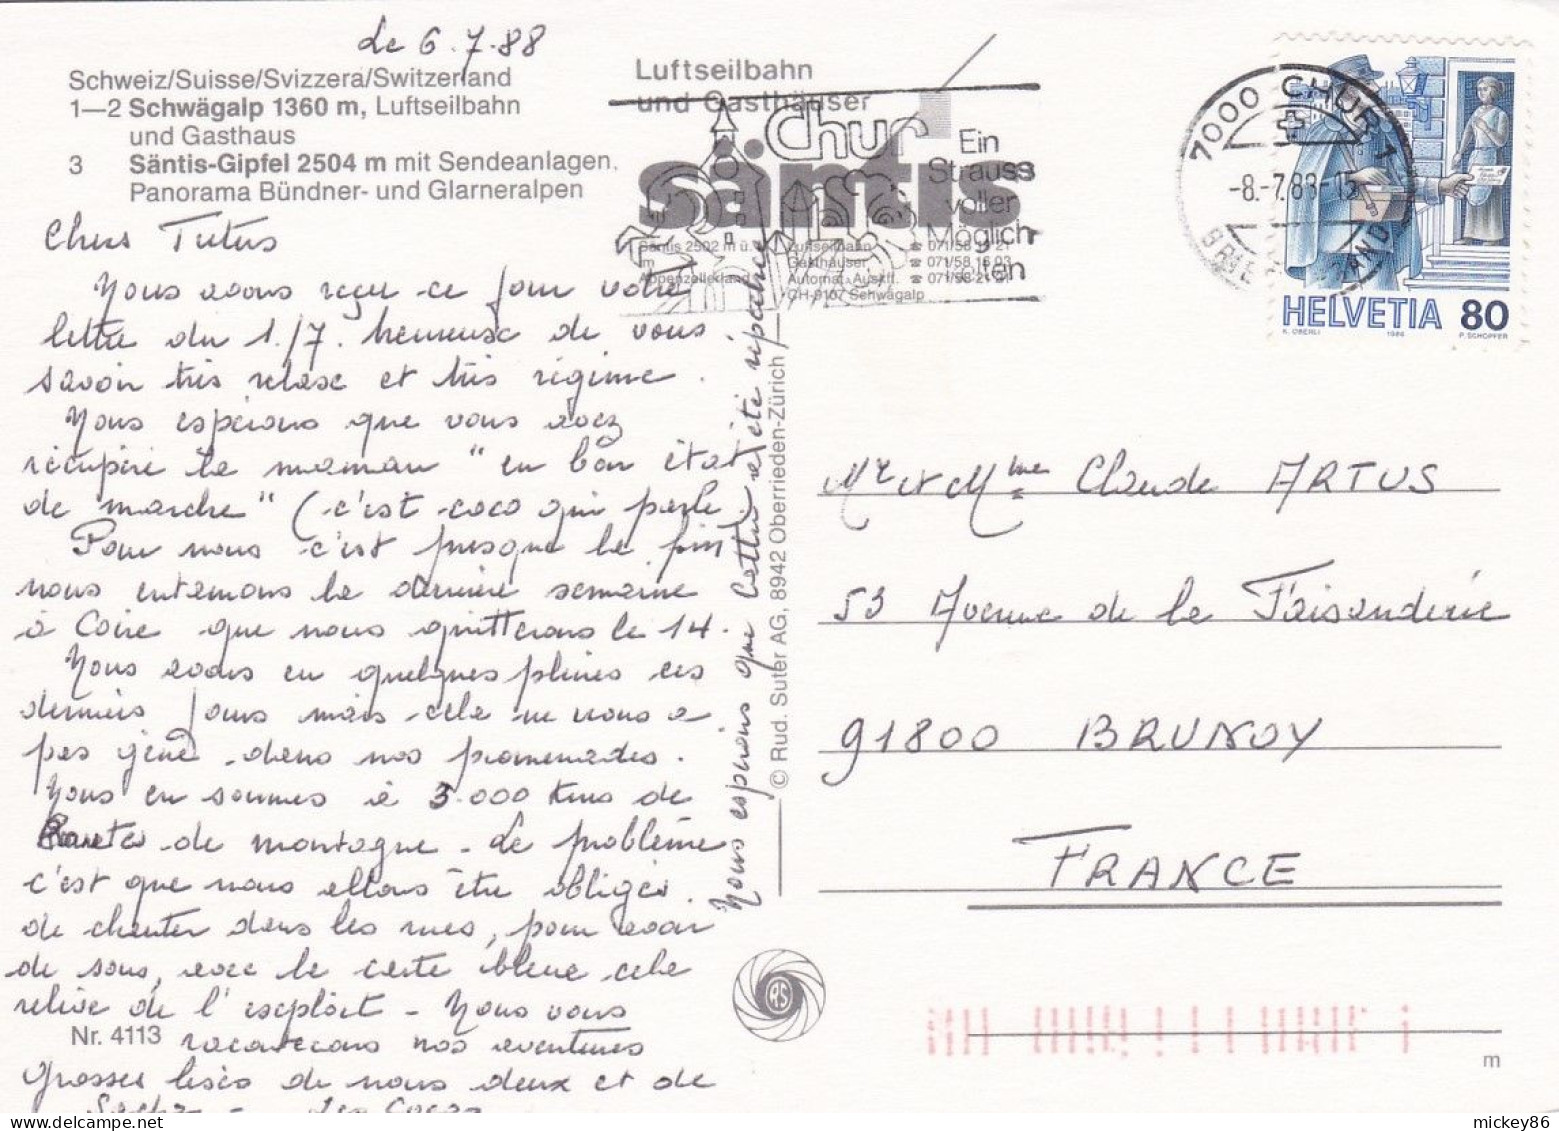 Le 6.7.88
Schweiz/Suisse/Svizzera/Switzerland
1—2 Schwägalp 1360 m, Luftseilbahn
und Gasthaus
3 Säntis-Gipfel 2504 m mit Sendeanlagen.
Panorama Bündner- und Glarneralpen
Chers Tutus
Nous avons reçu ce jour votre
lettre du 1./7. heureuse de vous
savoir très relaxe et très régime.
Nous espérons que vous avez
récupéré la maman "en bon état
de marche" (c'est coco qui parle)
Pour nous c'est presque la fin
nous entamons la dernière semaine
à Coire que nous quitterons le 14.
Nous avons eu quelques pluies ces
derniers jours mais cela ne nous a
pas gêné dans nos promenades.
Nous en sommes à 3.000 kms de
Routes de montagne - Le problème
c'est que nous allons être obligés
de chanter dans les rues, pour avoir
de sous, avec la carte bleue cela
relève de l'exploit - Nous vous
raconterons nos aventures
grosses bises de nous deux et de
Nous espérons que cette a été repêchée
Luftseilbahn
und Gasthäuser
säntis
Säntis 2502 m ü.
m
Appenzellerland
Luftseilbahn ☎ 071/58 19 21
Gasthäuser ☎ 071/58 16 03
Automat. Auskft. ☎ 071/58 21 21
CH-9107 Schwägalp
Chur
Ein
Strauss
voller
Möglich
ten
7000 CHUR 1
-8.-7.88-15
BRIEFVERSAND
HELVETIA 80
K. OBERLI 1986 P. SCHOPFER
© Rud. Suter AG, 8942 Oberrieden-Zürich
Mr et Mme Claude ARTUS
53 Avenue de la Faisanderie
91800 BRUNOY
FRANCE
RS
Nr. 4113
m
mickey86